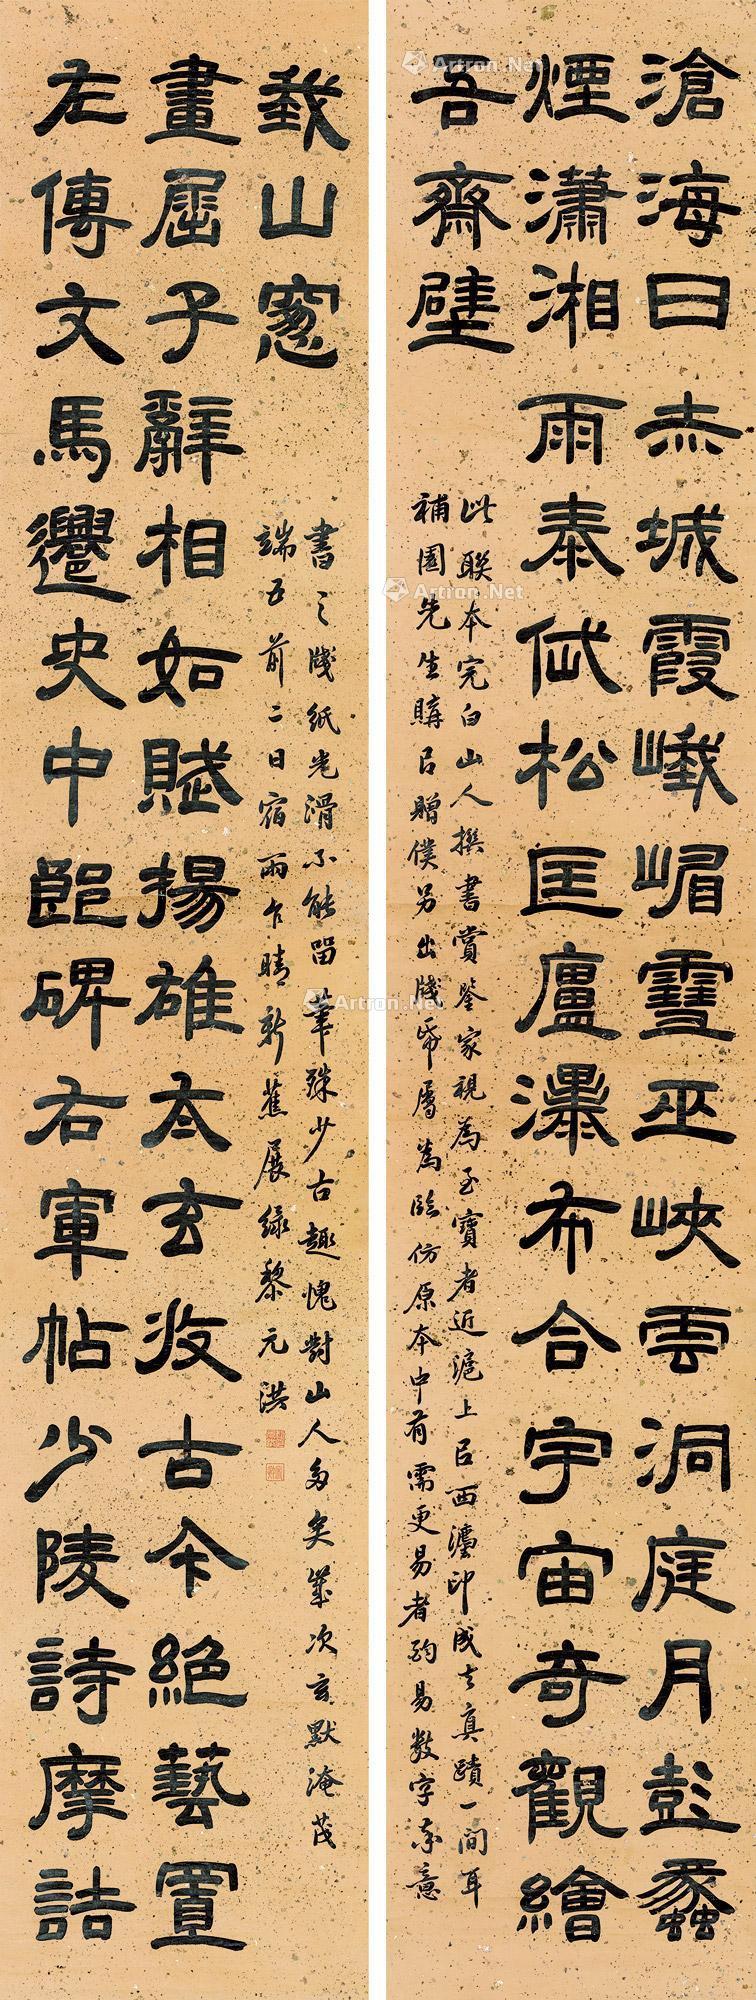 滄海日赤城霞峨嵋雪巫峽雲洞庭月彭蠡
煙瀟湘雨泰岱松匡廬瀑布合宇宙奇觀繪
吾齋壁
此聯本完白山人撰書賞鑒家視為至寶者近滬上以西灋印成去真蹟一間耳
補園先生購以贈僕另出牋帋屬為臨仿原本中有需更易者酌易數字意
左傳文馬遷史中郎碑右軍帖少陵詩摩詰
畫屈子辭相如賦揚雄太玄收古今絕藝置
我山窻
書之牋紙光滑不能留筆殊少古趣愧對山人多矣歲次玄默淹茂
端五前二日宿雨乍晴新蕉展綠黎元洪
Artron.Net
Artron.Net
Artron.Net
Artron.Net